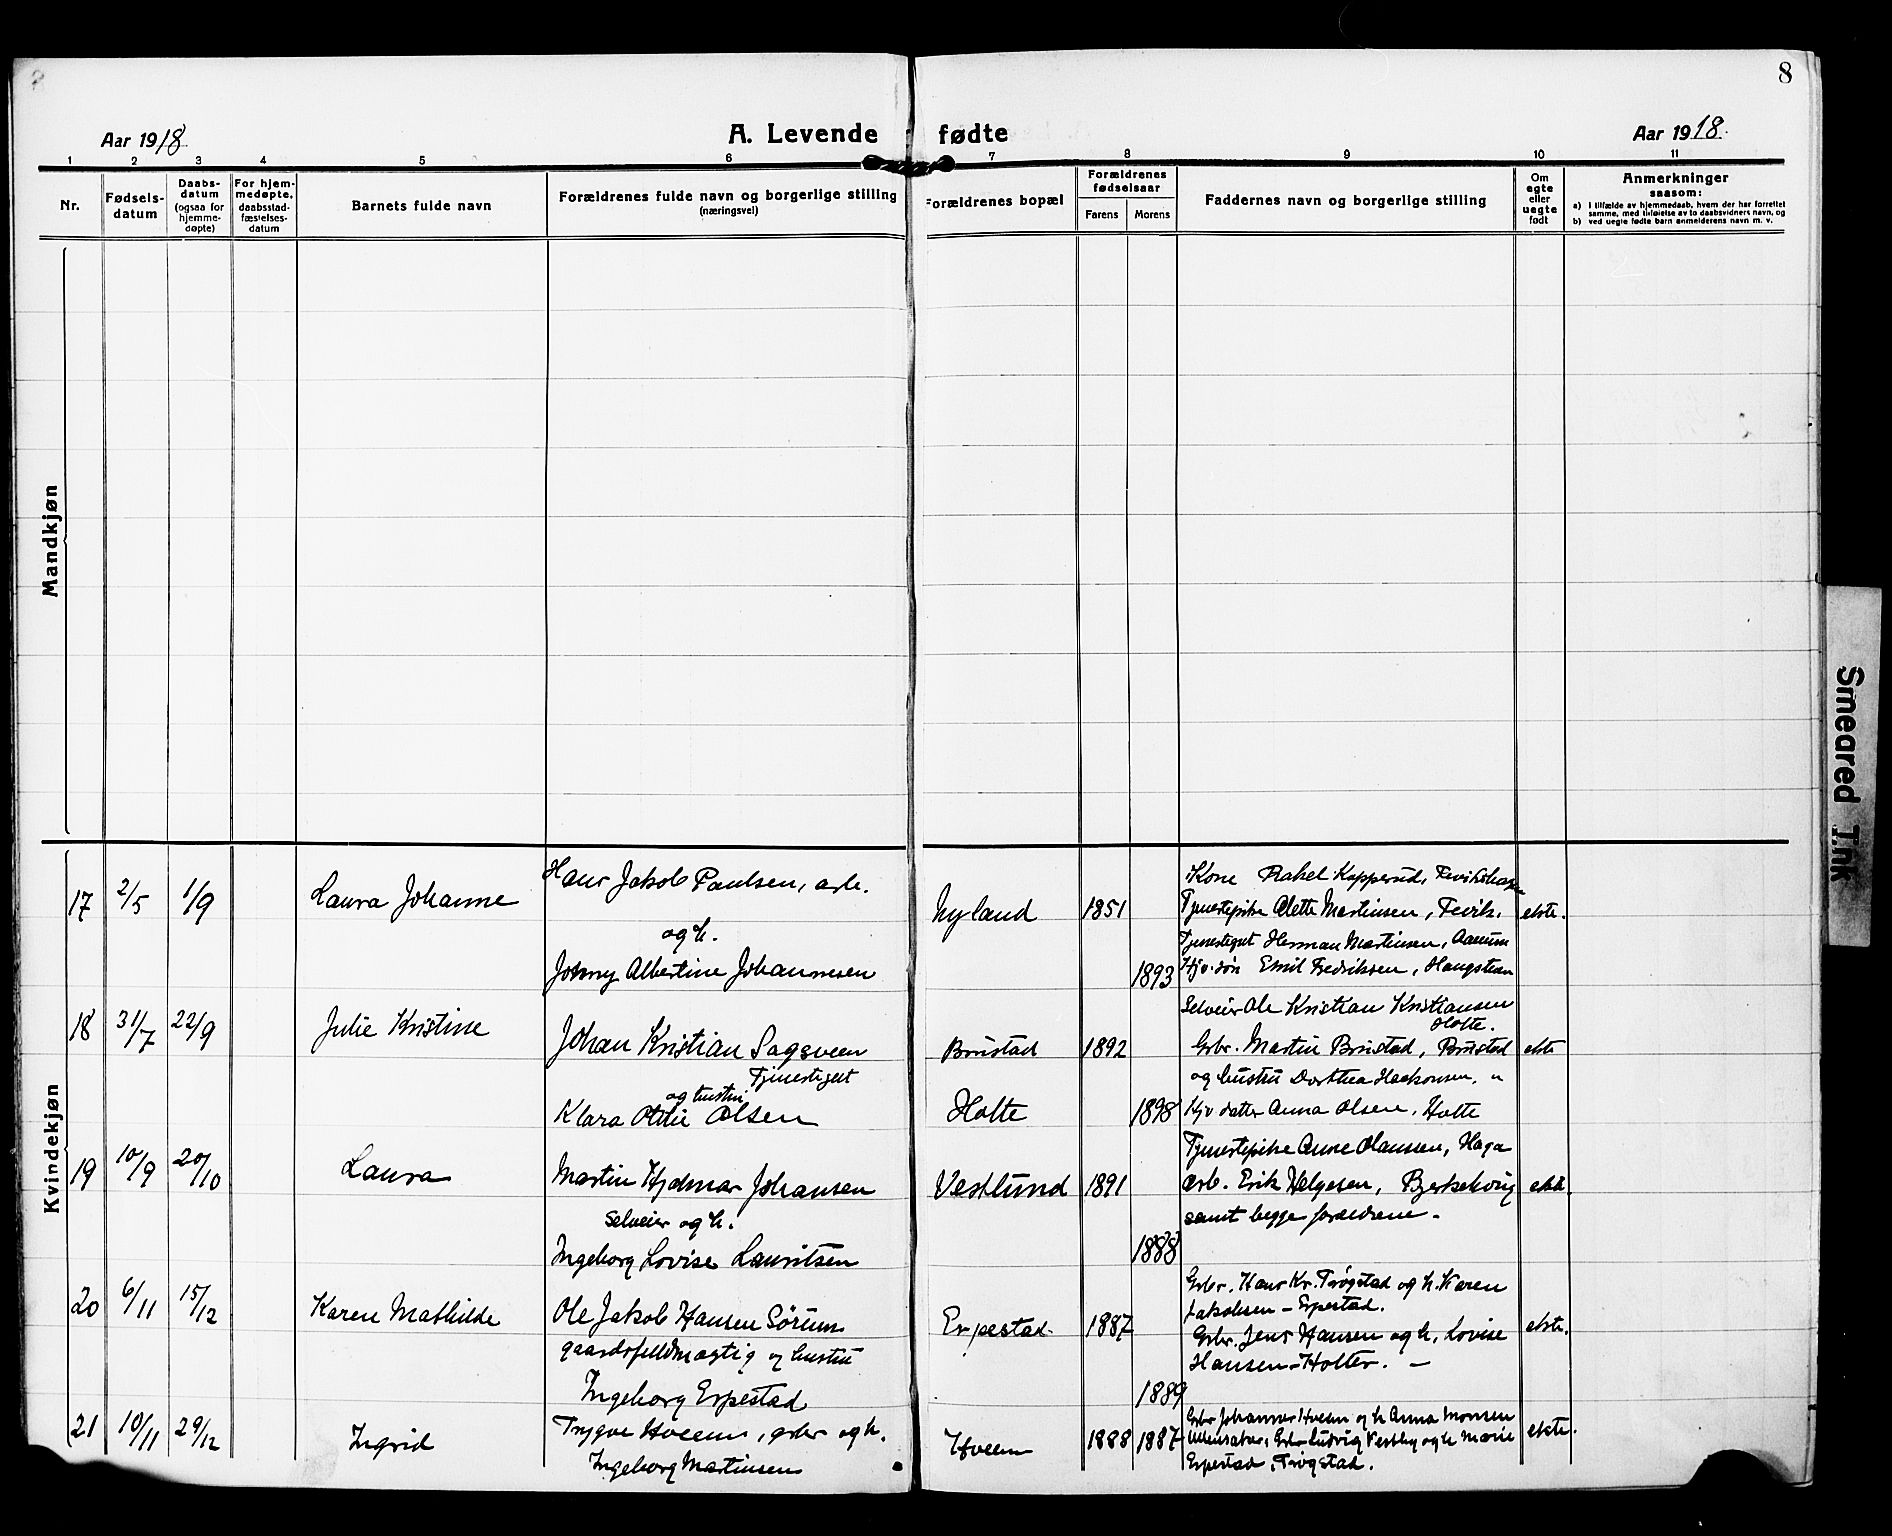 8
Aar 1918.
A. Levende fødte
Aar 1918.
1 2 3 4 5 6 7 8 9 10 11
Nr.
Fødsels-
datum
Daabs-
datum
(ogsaa for
hjemme-
døpte)
For hjem-
medøpte,
daabsstad-
fæstelses-
datum
Barnets fulde navn
Forældrenes fulde navn og borgerlige stilling
(næringsvei)
Forældrenes bopæl
Forældrenes
fødselsaar
Farens Morens
Faddernes navn og borgerlige stilling
Om
egte
eller
uegte
født
Anmerkninger
saasom:
a) I tilfælde av hjemmedaab, hvem der har forrettet
samme, med tilføielse av to daabsvidners navn, og
b) ved uegte fødte barn anmelderens navn m. v.
Mandkjøn
Kvindekjøn
17 2/5 1/9 Laura Johanne
Hans Jakob Paulsen, arb.
og h.
Johny Albertine Johannesen
Nyland 1851
1893
Kone Rakel Kopperud,
Tjenestepike Alette Martinsen, Fevik.
Tjenestegut Herman Martinsen,
Hjv. søn Emil Fredriksen, Haugstean
ekte.
18 31/7 22/9 Julie Kristine
Johan Kristian Sagsveen
Tjenestegut
og hustru
Klara Otilie Olsen
Brustad 1892
Holte 1898
Selveier Ole Kristian Kristiansen
Holte.
Gbr. Martin Brustad, Brustad
og hustru Dorthea Haakonsen, "
Hjv datter Anna Olsen, Holte
ekte
19 10/9 20/10 Laura
Martin Hjalmar Johansen
selveier og h.
Ingeborg Lovise Lauritsen
Vestlund 1891
1888
Tjenestepike Anne Olaussen, Haga
arb. Erik Helgesen,
samt begge forældrene -
ekte.
20 6/11 15/12 Karen Mathilde
Ole Jakob Hansen Sørum
gaardsfuldmægtig og hustru
Ingeborg Erpestad
Erpestad. 1887
1889
Gbr. Hans Kr. Trøgstad og h. Karen
Jakobsen - Erpestad.
Gbr. Jens Hansen og h. Lovise
Hansen - Holter. -
ekte.
21 10/11 29/12 Ingrid
Trygve Hveem, gbr og h.
Ingeborg Martinsen
Hveem 1888 1887
Gbr Johannes Hveem og h Anna Monsen
Ullensaker, Gbr Ludvig Vestby og h Marie
Erpestad, Trøgstad.
ekte.
Smeared Ink